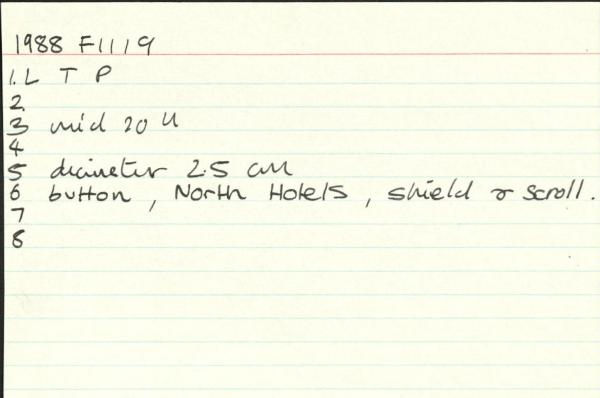 1988 F1119
1. L T P
2
3 mid 20
4
5 diameter 2.5 cm
6 button, North Hotels, shield & scroll.
7
8